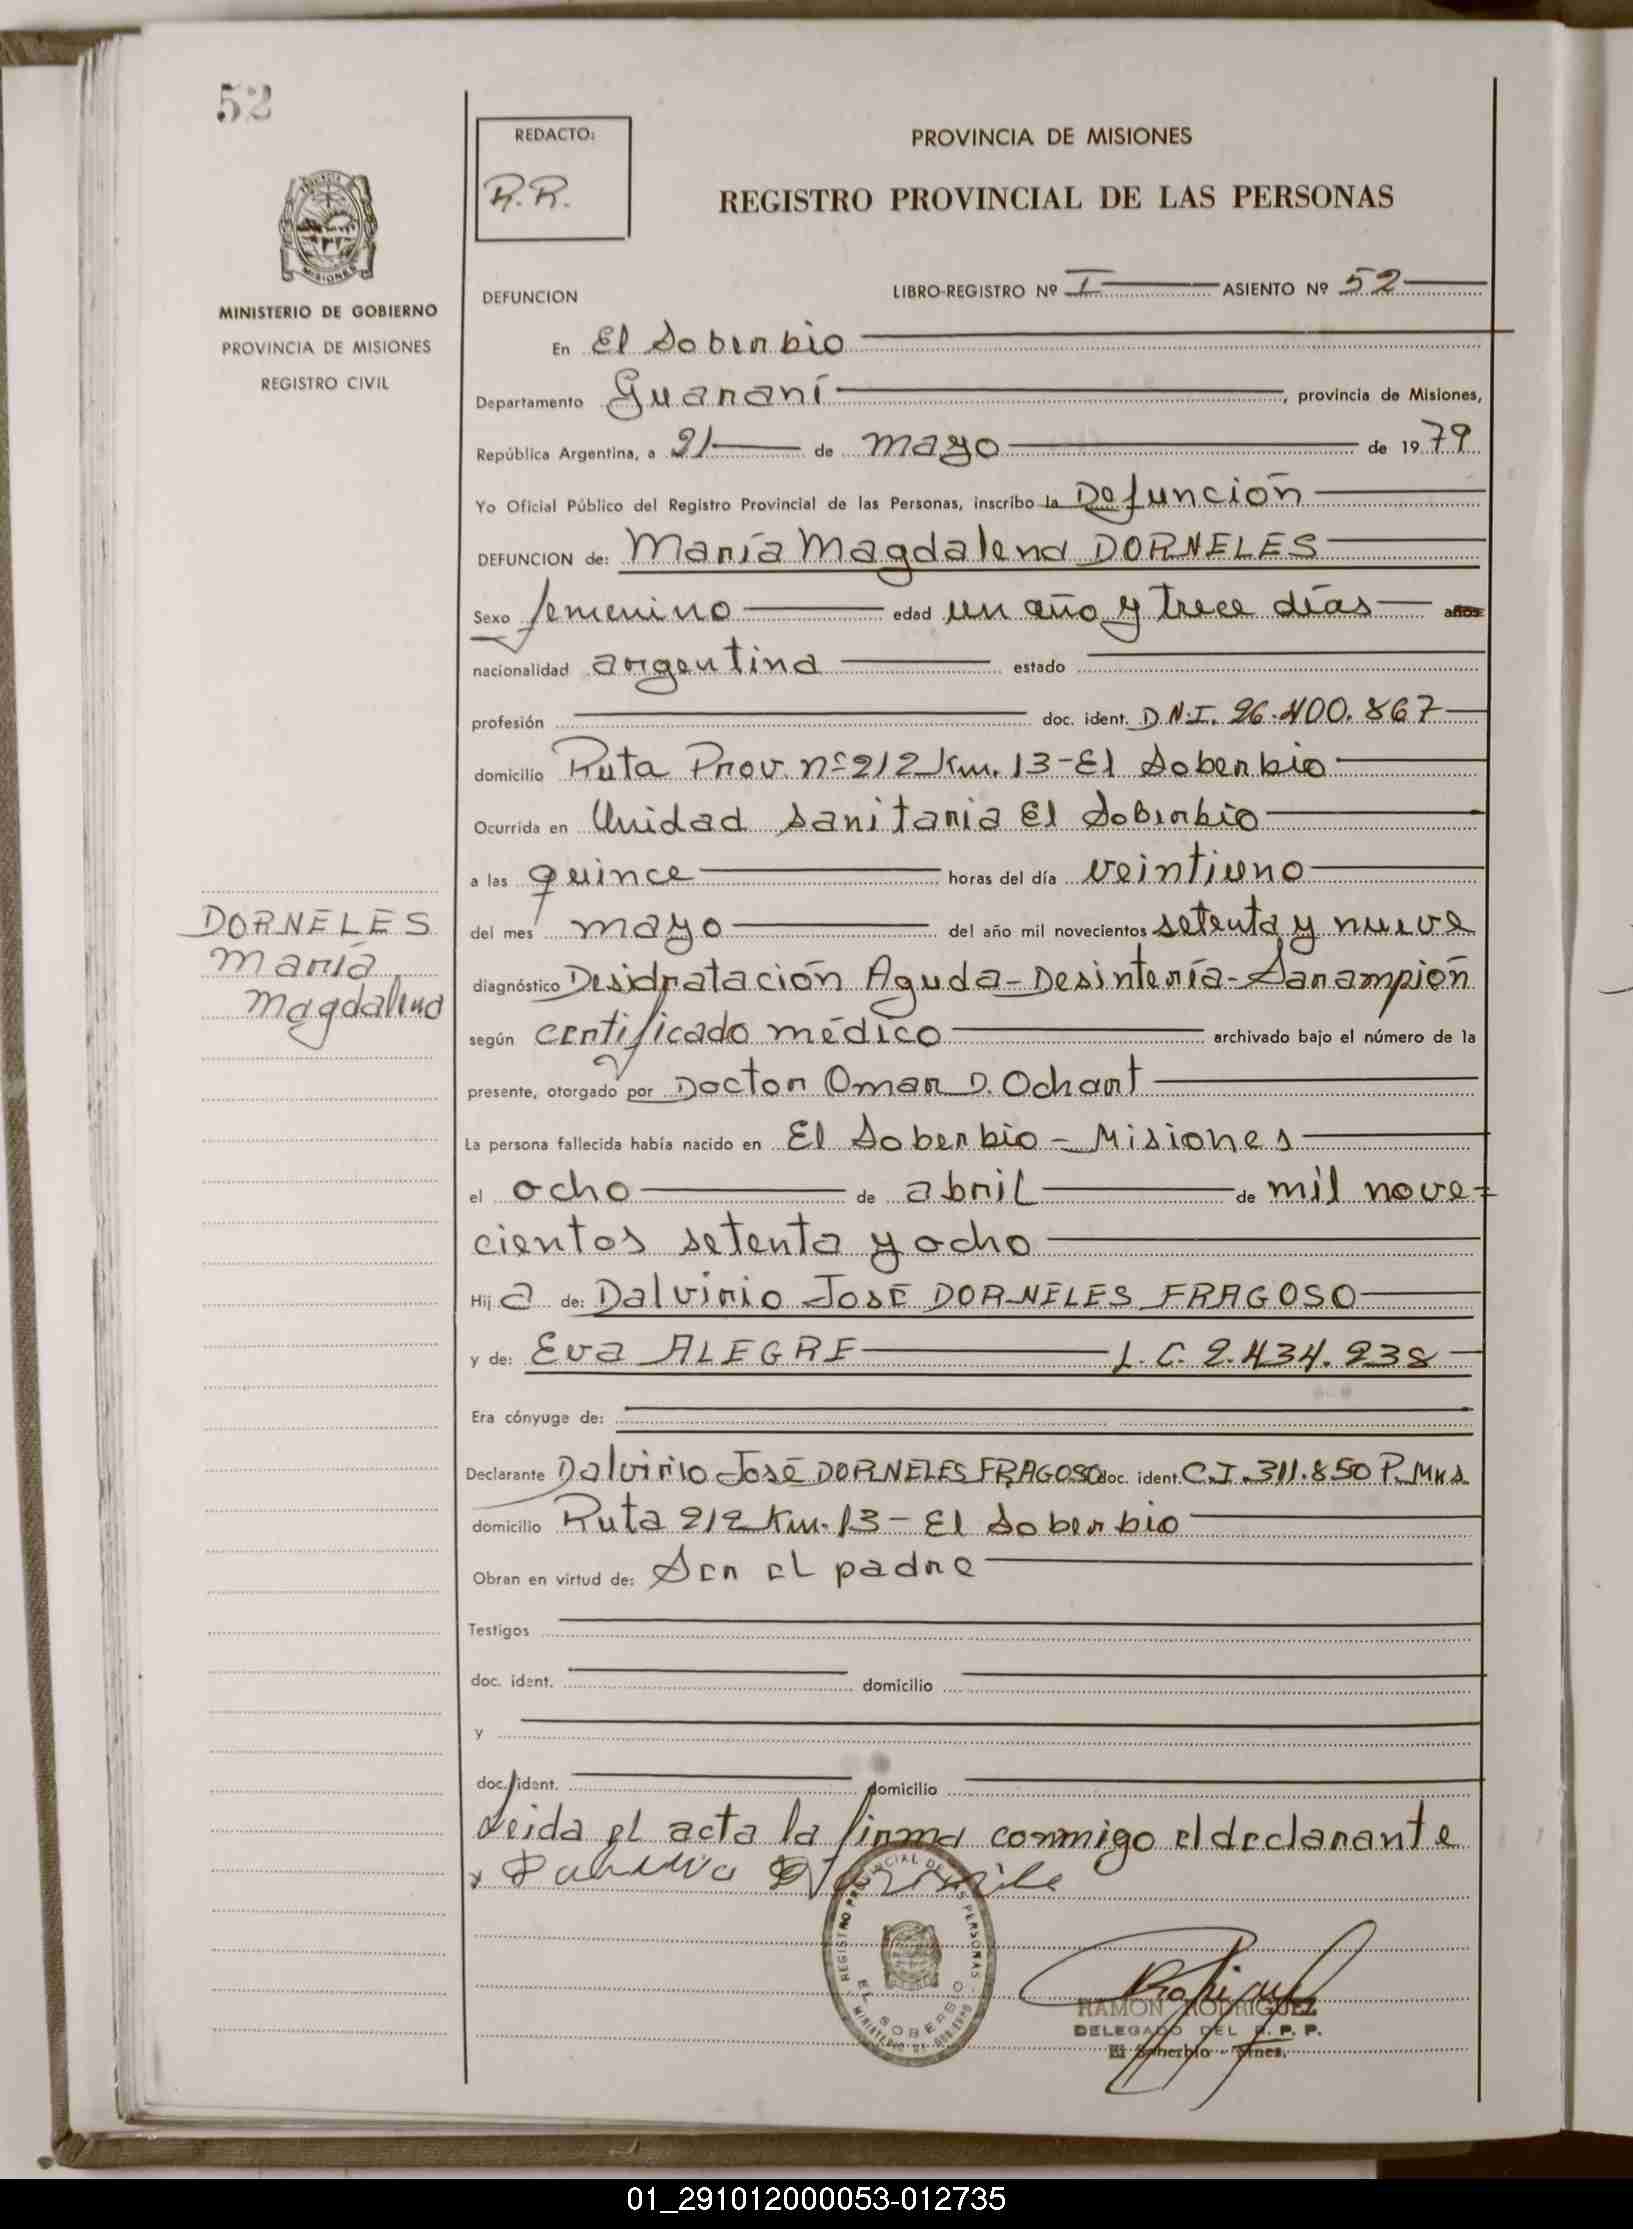 52
REDACTO:
R.R.
PROVINCIA DE MISIONES
REGISTRO PROVINCIAL DE LAS PERSONAS
PROVINCIA
MISIONES
MINISTERIO DE GOBIERNO
PROVINCIA DE MISIONES
REGISTRO CIVIL
DEFUNCION LIBRO-REGISTRO Nº I ASIENTO Nº 52
En El Soberbio
Departamento Guaraní, provincia de Misiones,
República Argentina, a 21 de mayo de 1979
Yo Oficial Público del Registro Provincial de las Personas, inscribo la Defunción
DEFUNCION de: María Magdalena DORNELES
Sexo femenino edad un año y trece días años
nacionalidad argentina estado
profesión doc. ident. D.N.I. 26.400.867
domicilio Ruta Prov. nº 212 Km. 13 - El Soberbio
Ocurrida en Unidad Sanitaria El Soberbio
a las quince horas del día veintiuno
DORNELES
María
Magdalena
del mes mayo del año mil novecientos setenta y nueve
diagnóstico Desidratación Aguda - Desintería - Sarampión
según certificado médico archivado bajo el número de la
presente, otorgado por Doctor Omar D. Ochart
La persona fallecida había nacido en El Soberbio - Misiones
el ocho de abril de mil nove-
cientos setenta y ocho
Hija de: Dalvirio José DORNELES FRAGOSO
y de: Eva ALEGRE L.C. 2.434.238
Era cónyuge de:
Declarante Dalvirio José DORNELES FRAGOSO doc. ident. C.I. 311.850 P. Mns.
domicilio Ruta 212 Km. 13 - El Soberbio
Obran en virtud de: Ser el padre
Testigos
doc. ident. domicilio
y
doc. ident. domicilio
Leida el acta la firma conmigo el declarante
REGISTRO PROVINCIAL DE LAS PERSONAS
EL SOBERBIO
MINISTERIO DE GOBIERNO
RAMON RODRIGUEZ
DELEGADO DEL R. P. P.
El Soberbio - Mnes.
01_291012000053-012735